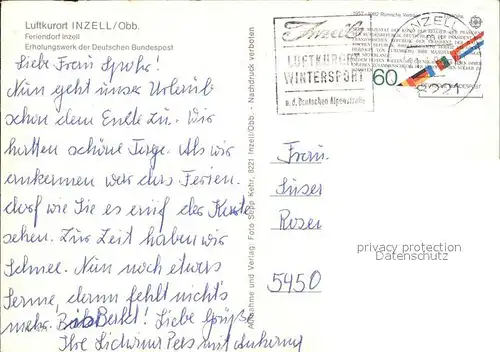 Luftkurort INZELL/Obb.
Feriendorf Inzell
Erholungswerk der Deutschen Bundespost
Liebe Frau
Nun geht unser Urlaub
schon dem Ende zu. Wir
hatten schöne Tage. Als wir
ankammen war das Ferien.
dorf wie Sie es auf der Karte
sehen. Zur Zeit haben wir
Schnee. Nun noch etwas
Sonne, dann fehlt nicht's
mehr. Bis Liebe Grüße
Ihre mit Anhang
Aufnahme und Verlag: Foto Sepp Kehr, 8221 Inzell/Obb. - Nachdruck verboten
Inzell
LUFTKURORT
WINTERSPORT
a.d. Deutschen Alpenstraße
1957-1982 Römische Verträge
60
INZELL
8221
Frau
Rosen
5450
privacy protection
Datenschutz